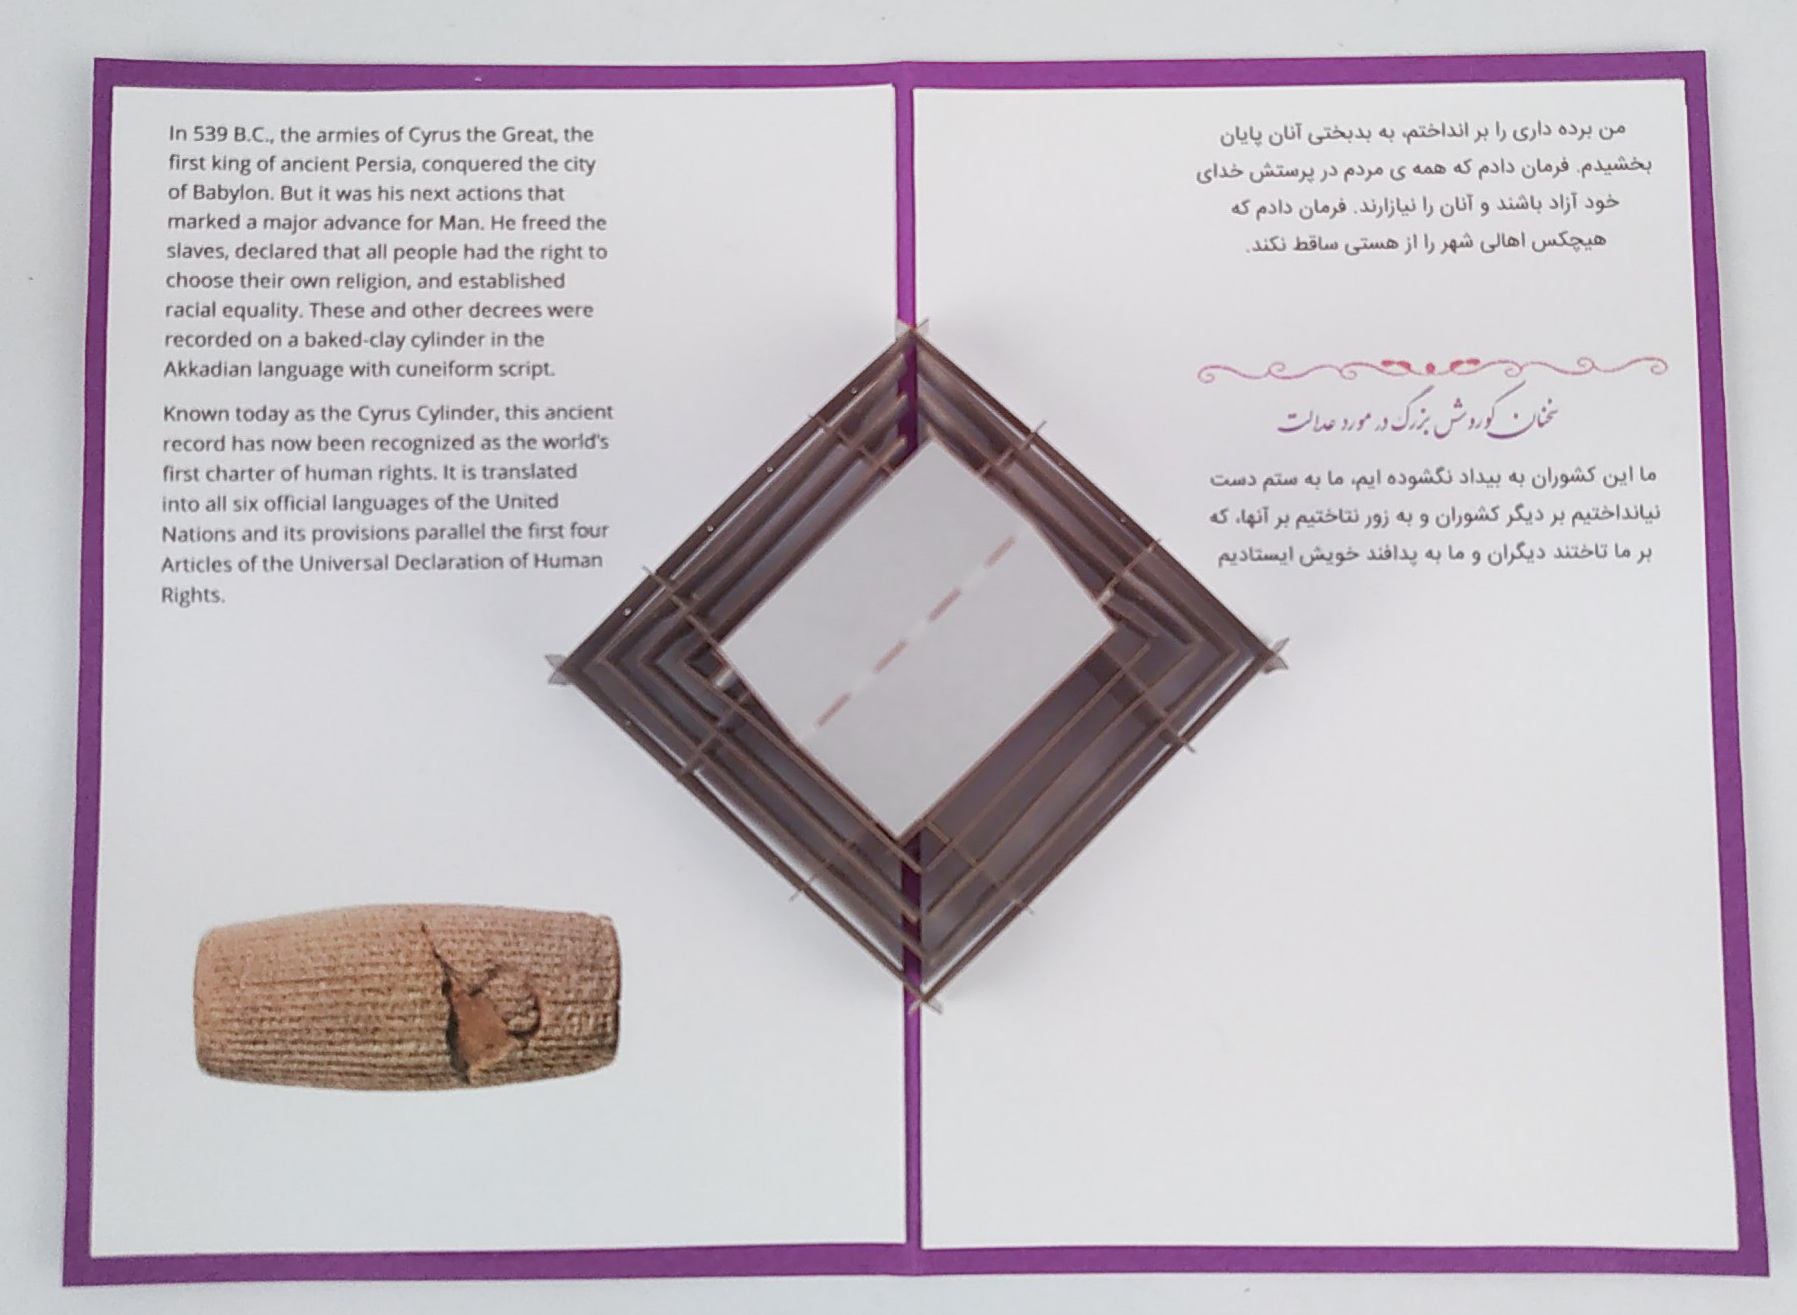 In 539 B.C., the armies of Cyrus the Great, the
first king of ancient Persia, conquered the city
of Babylon. But it was his next actions that
marked a major advance for Man. He freed the
slaves, declared that all people had the right to
choose their own religion, and established
racial equality. These and other decrees were
recorded on a baked-clay cylinder in the
Akkadian language with cuneiform script.
Known today as the Cyrus Cylinder, this ancient
record has now been recognized as the world's
first charter of human rights. It is translated
into all six official languages of the United
Nations and its provisions parallel the first four
Articles of the Universal Declaration of Human
Rights.
من برده داری را بر انداختم، به بدبختی آنان پایان
بخشیدم. فرمان دادم که همه ی مردم در پرستش خدای
خود آزاد باشند و آنان را نیازارند. فرمان دادم که
هیچکس اهالی شهر را از هستی ساقط نکند.
سخنان کوروش بزرگ در مورد عدالت
ما این کشوران به بیداد نگشوده ایم، ما به ستم دست
نیانداختیم بر دیگر کشوران و به زور نتاختیم بر آنها، که
بر ما تاختند دیگران و ما به پدافند خویش ایستادیم